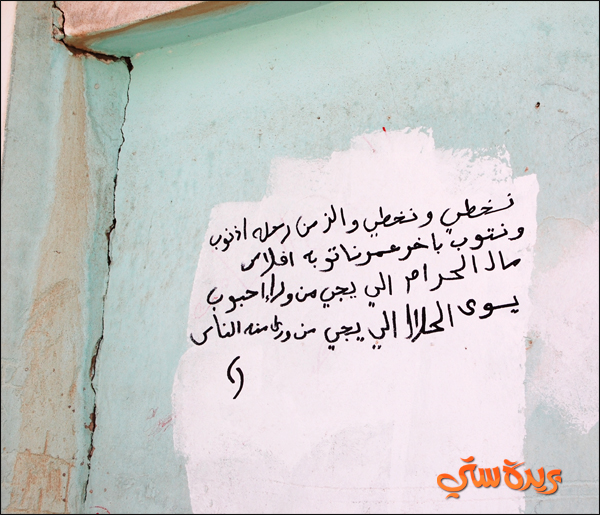 نخطي ونخطي والزمن رحله اذنوب
ونتوب باخر عمرنا توبه افلاس
مال الحرام الي يجي من ورا احبوب
يسوى الحلال الي يجي من ورى منه الناس
بريدة ستي